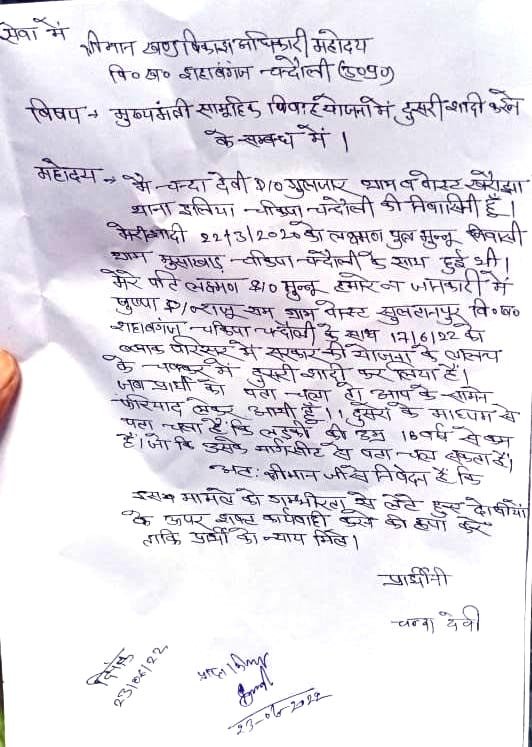 सेवा में
श्रीमान खण्ड विकास अधिकारी महोदय
वि० ख० शहाबगंज चन्दौली (उ०प्र०)
विषय → मुख्यमंत्री सामूहिक विवाह योजना में दुसरी शादी करने
के सम्बन्ध में ।
महोदय → मै चन्दा देवी D/O गुलजार ग्राम व पोस्ट खरौझा
थाना इलिया चकिया चन्दौली की निवासिनी हूँ ।
मेरी शादी 22/3/2020 को लक्ष्मण पुत्र मुन्नू निवासी
ग्राम मुसाखाड़ चकिया चन्दौली के साथ हुई थी ।
मेरे पति लक्ष्मण S/O मुन्नू हमारे न जानकारी में
पुष्पा D/O राजू राम ग्राम पोस्ट सुल्तानपुर वि० ख०
शहाबगंज चकिया चन्दौली के साथ 17/6/22 को
ब्लाक परिसर में सरकार की योजना के लालच
के चक्कर में दुसरी शादी कर लिया है ।
जब प्रार्थी को पता चला तो आप के सामने
फरियाद लेकर आयी हूँ । दुसरो के माध्यम से
पता चला है कि लड़की की उम्र 18 वर्ष से कम
है । जो कि उसके मार्कसीट से पता चल सकता है ।
अतः श्रीमान जी से निवेदन है कि
इस मामले को गम्भीरता से लेते हुए दोषीयों
के ऊपर शक्त कार्यवाही करने की कृपा करे
ताकि प्रार्थी को न्याय मिले ।
प्रार्थीनी
चन्दा देवी
दिनांक
23/06/22
23-06-2022